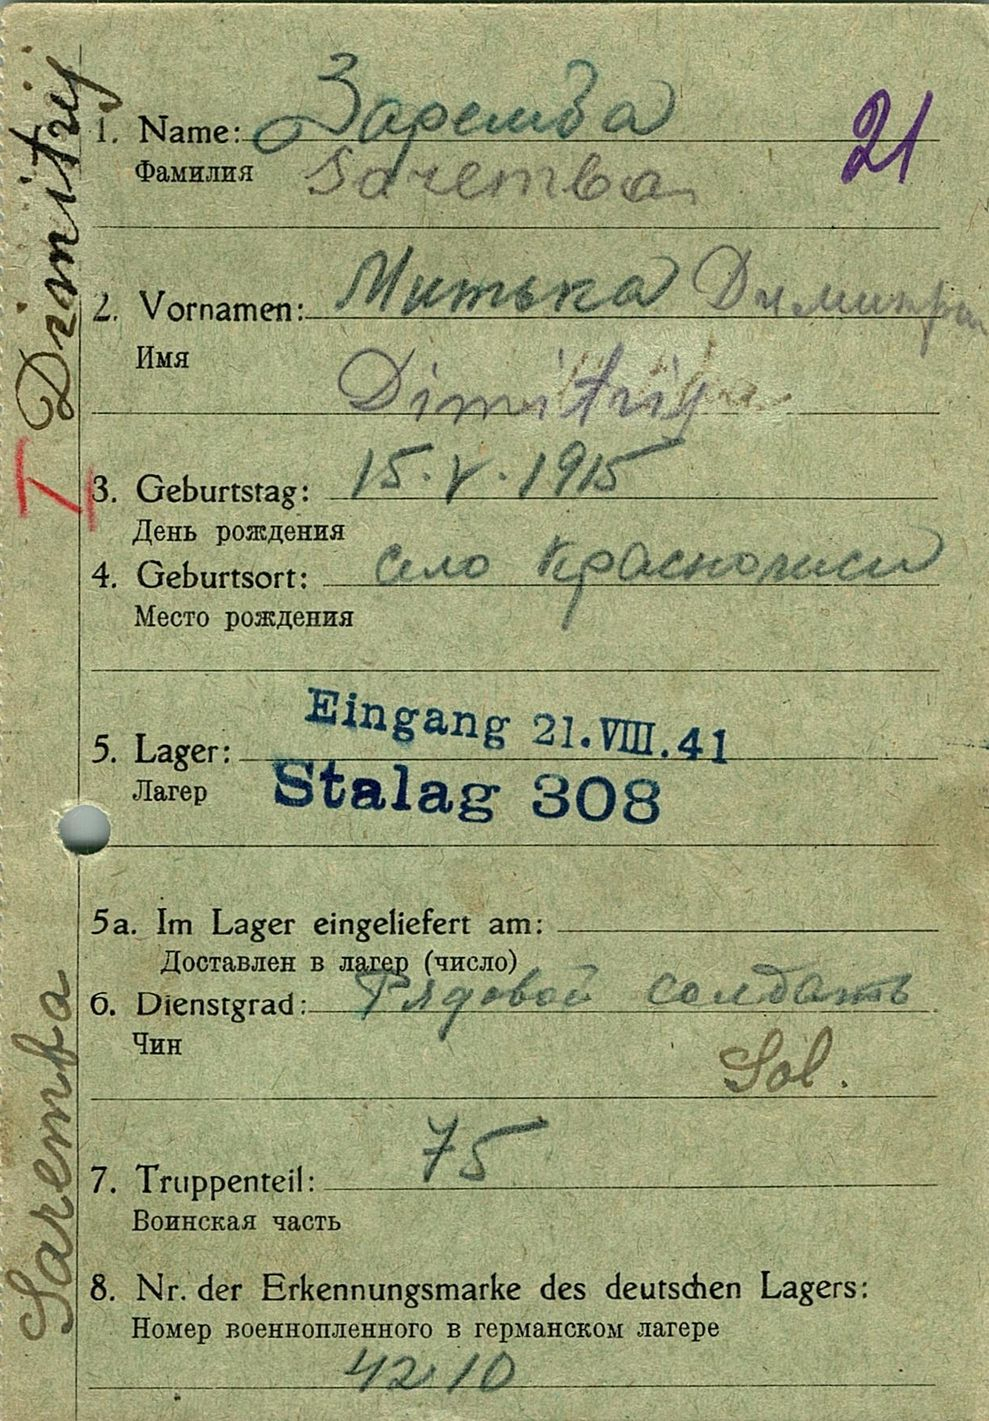 Dimitrij
21
1. Name: Заремба
Фамилия Saremba
2. Vornamen: Митька Димитри
Имя
Dimitrij
3. Geburtstag: 15.V.1915
День рождения
4. Geburtsort: село
Место рождения
Eingang 21.VIII.41
5. Lager:
Лагер
Stalag 308
5a. Im Lager eingeliefert am:
Доставлен в лагер (число)
6. Dienstgrad: Рядовой солдатъ
Чин
Sol.
7. Truppenteil: 75
Воинская часть
8. Nr. der Erkennungsmarke des deutschen Lagers:
Номер военнопленного в германском лагере
4210
Saremba